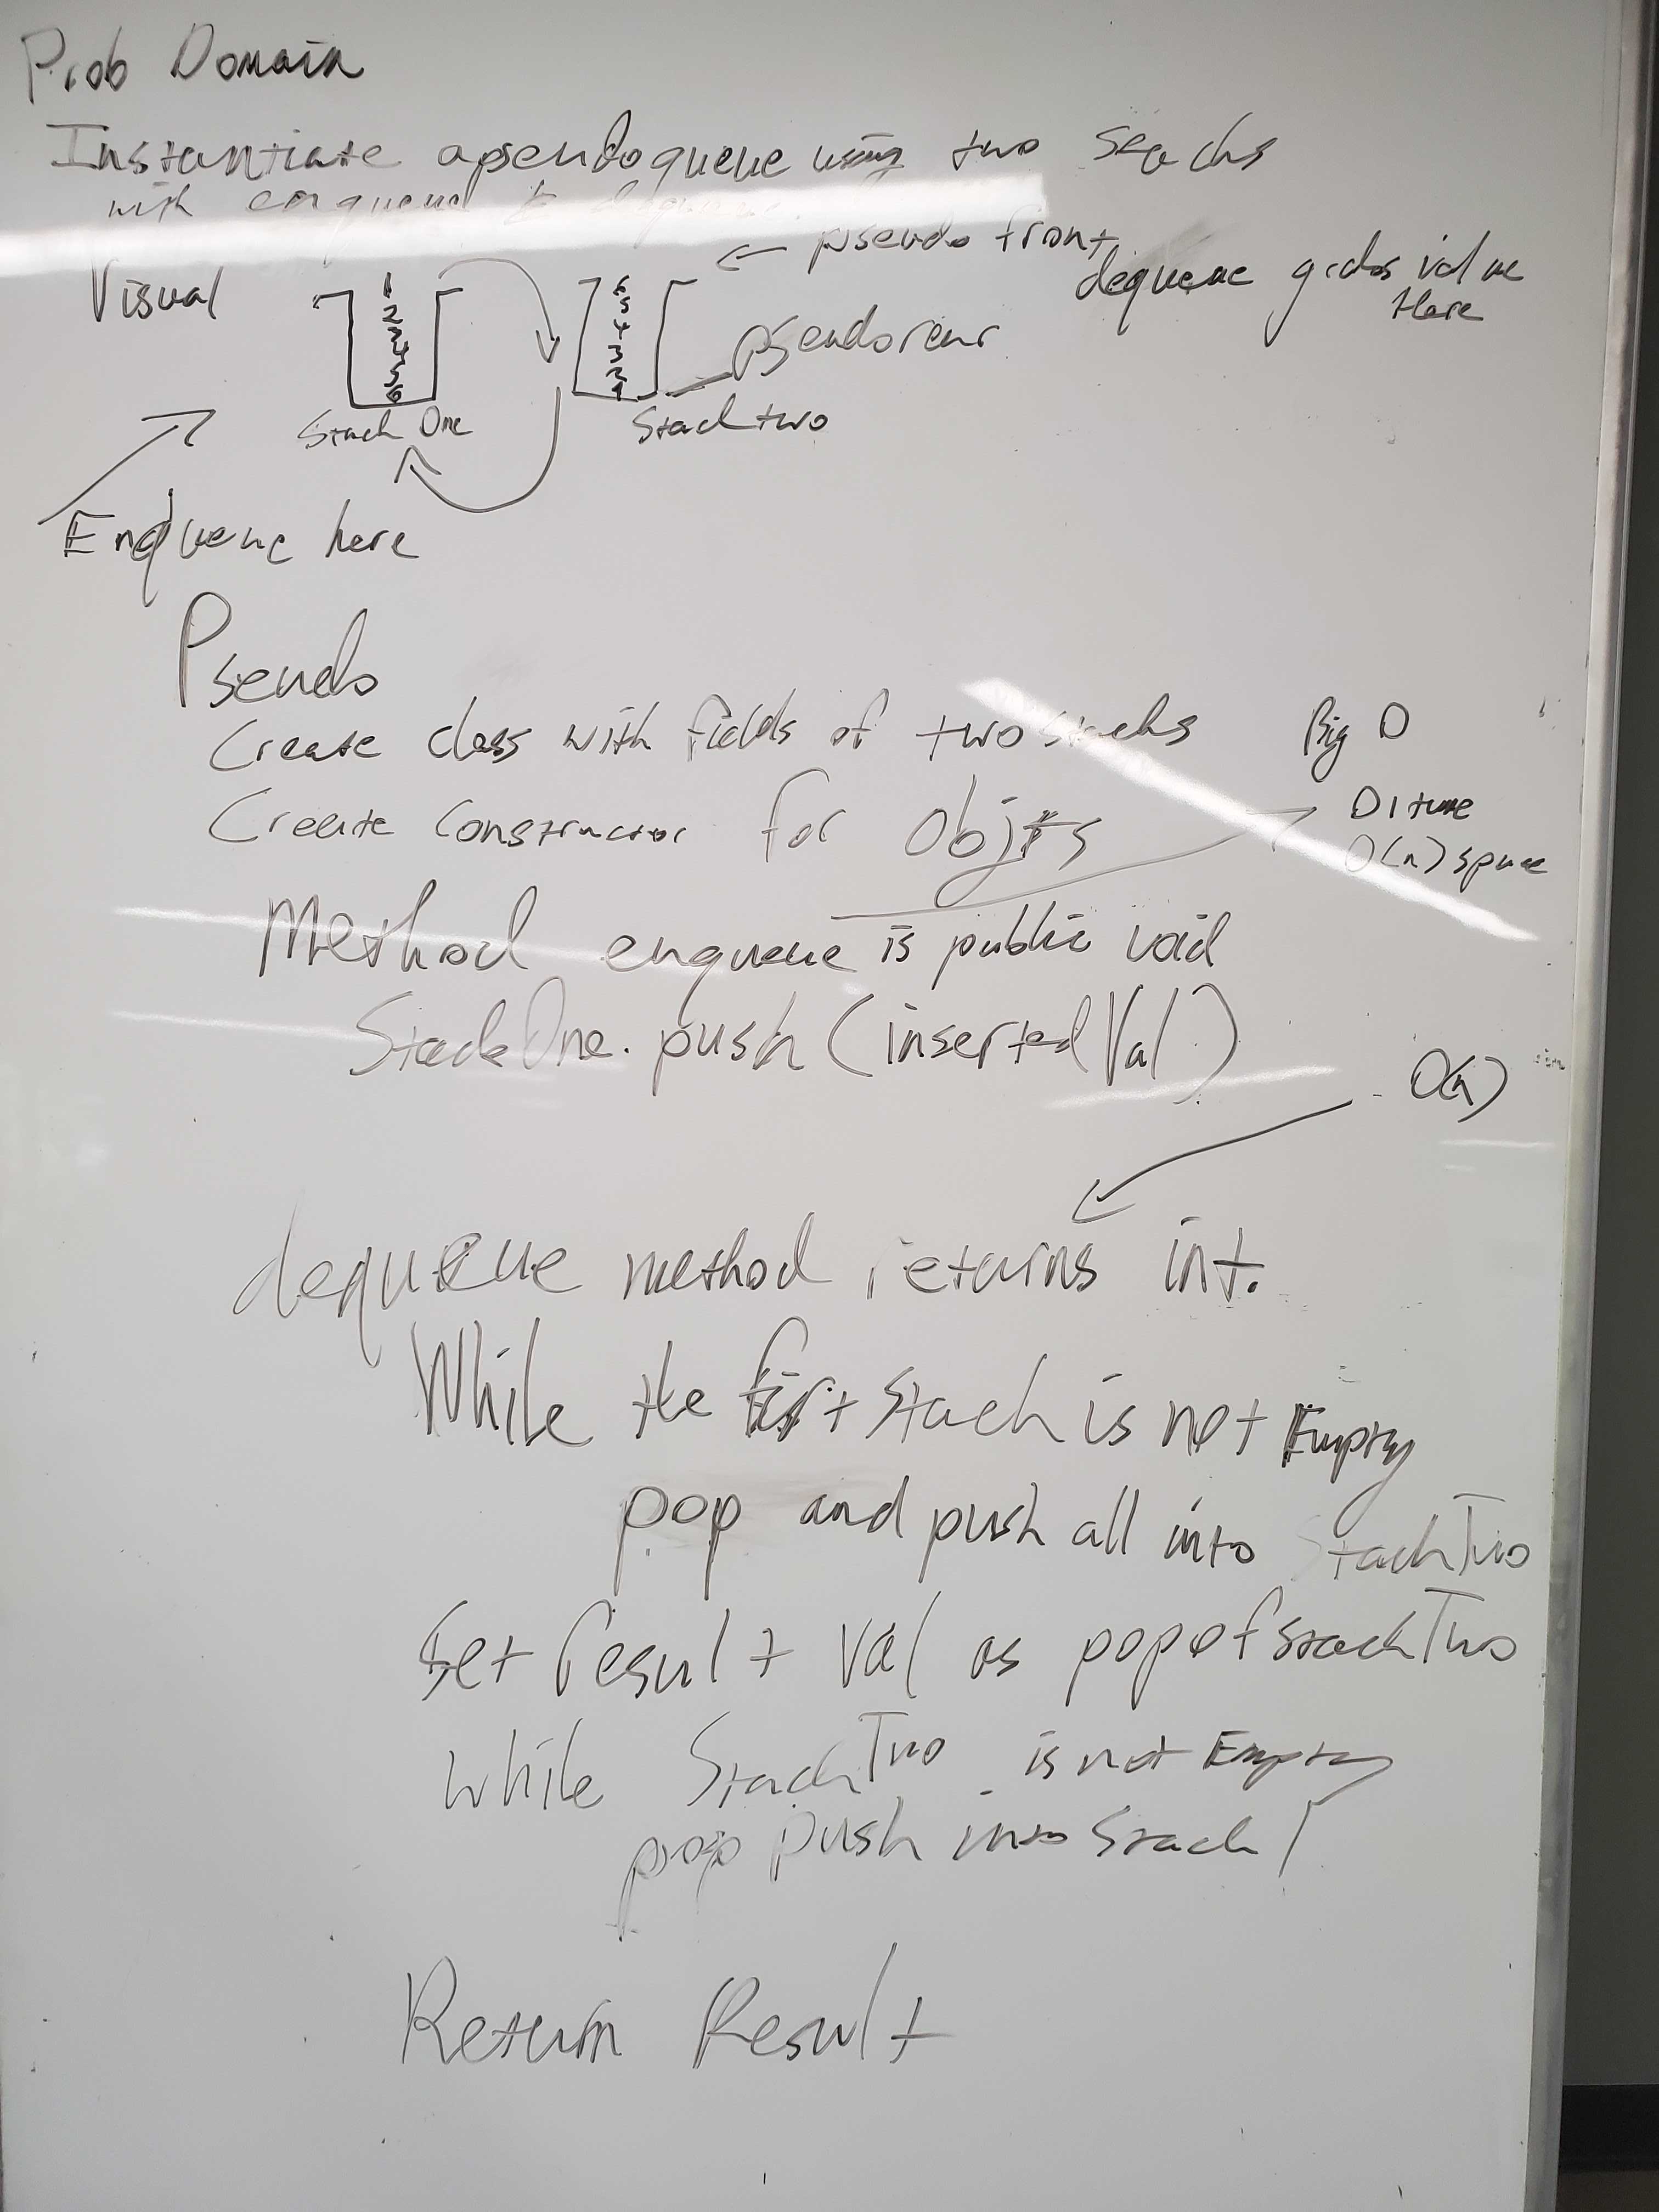 Prob Domain
Instantiate a pseudoqueue using two stacks
with enqueue & dequeue.
Visual
← pseudo front,
dequeue grabs value
Here
1
2
3
4
5
6
6
5
4
3
2
1
pseudo rear
Stack One
Stack two
Enqueue here
Pseudo
Create class with fields of two stacks
Big O
Create constructor for Objts
O1 time
O(n) space
Method enqueue is public void
StackOne.push(insertedVal)
O(n)
dequeue method returns int.
While the first stack is not Empty
pop and push all into StackTwo
Set result val as pop of stackTwo
while StackTwo is not Empty
pop push into Stack 1
Return Result